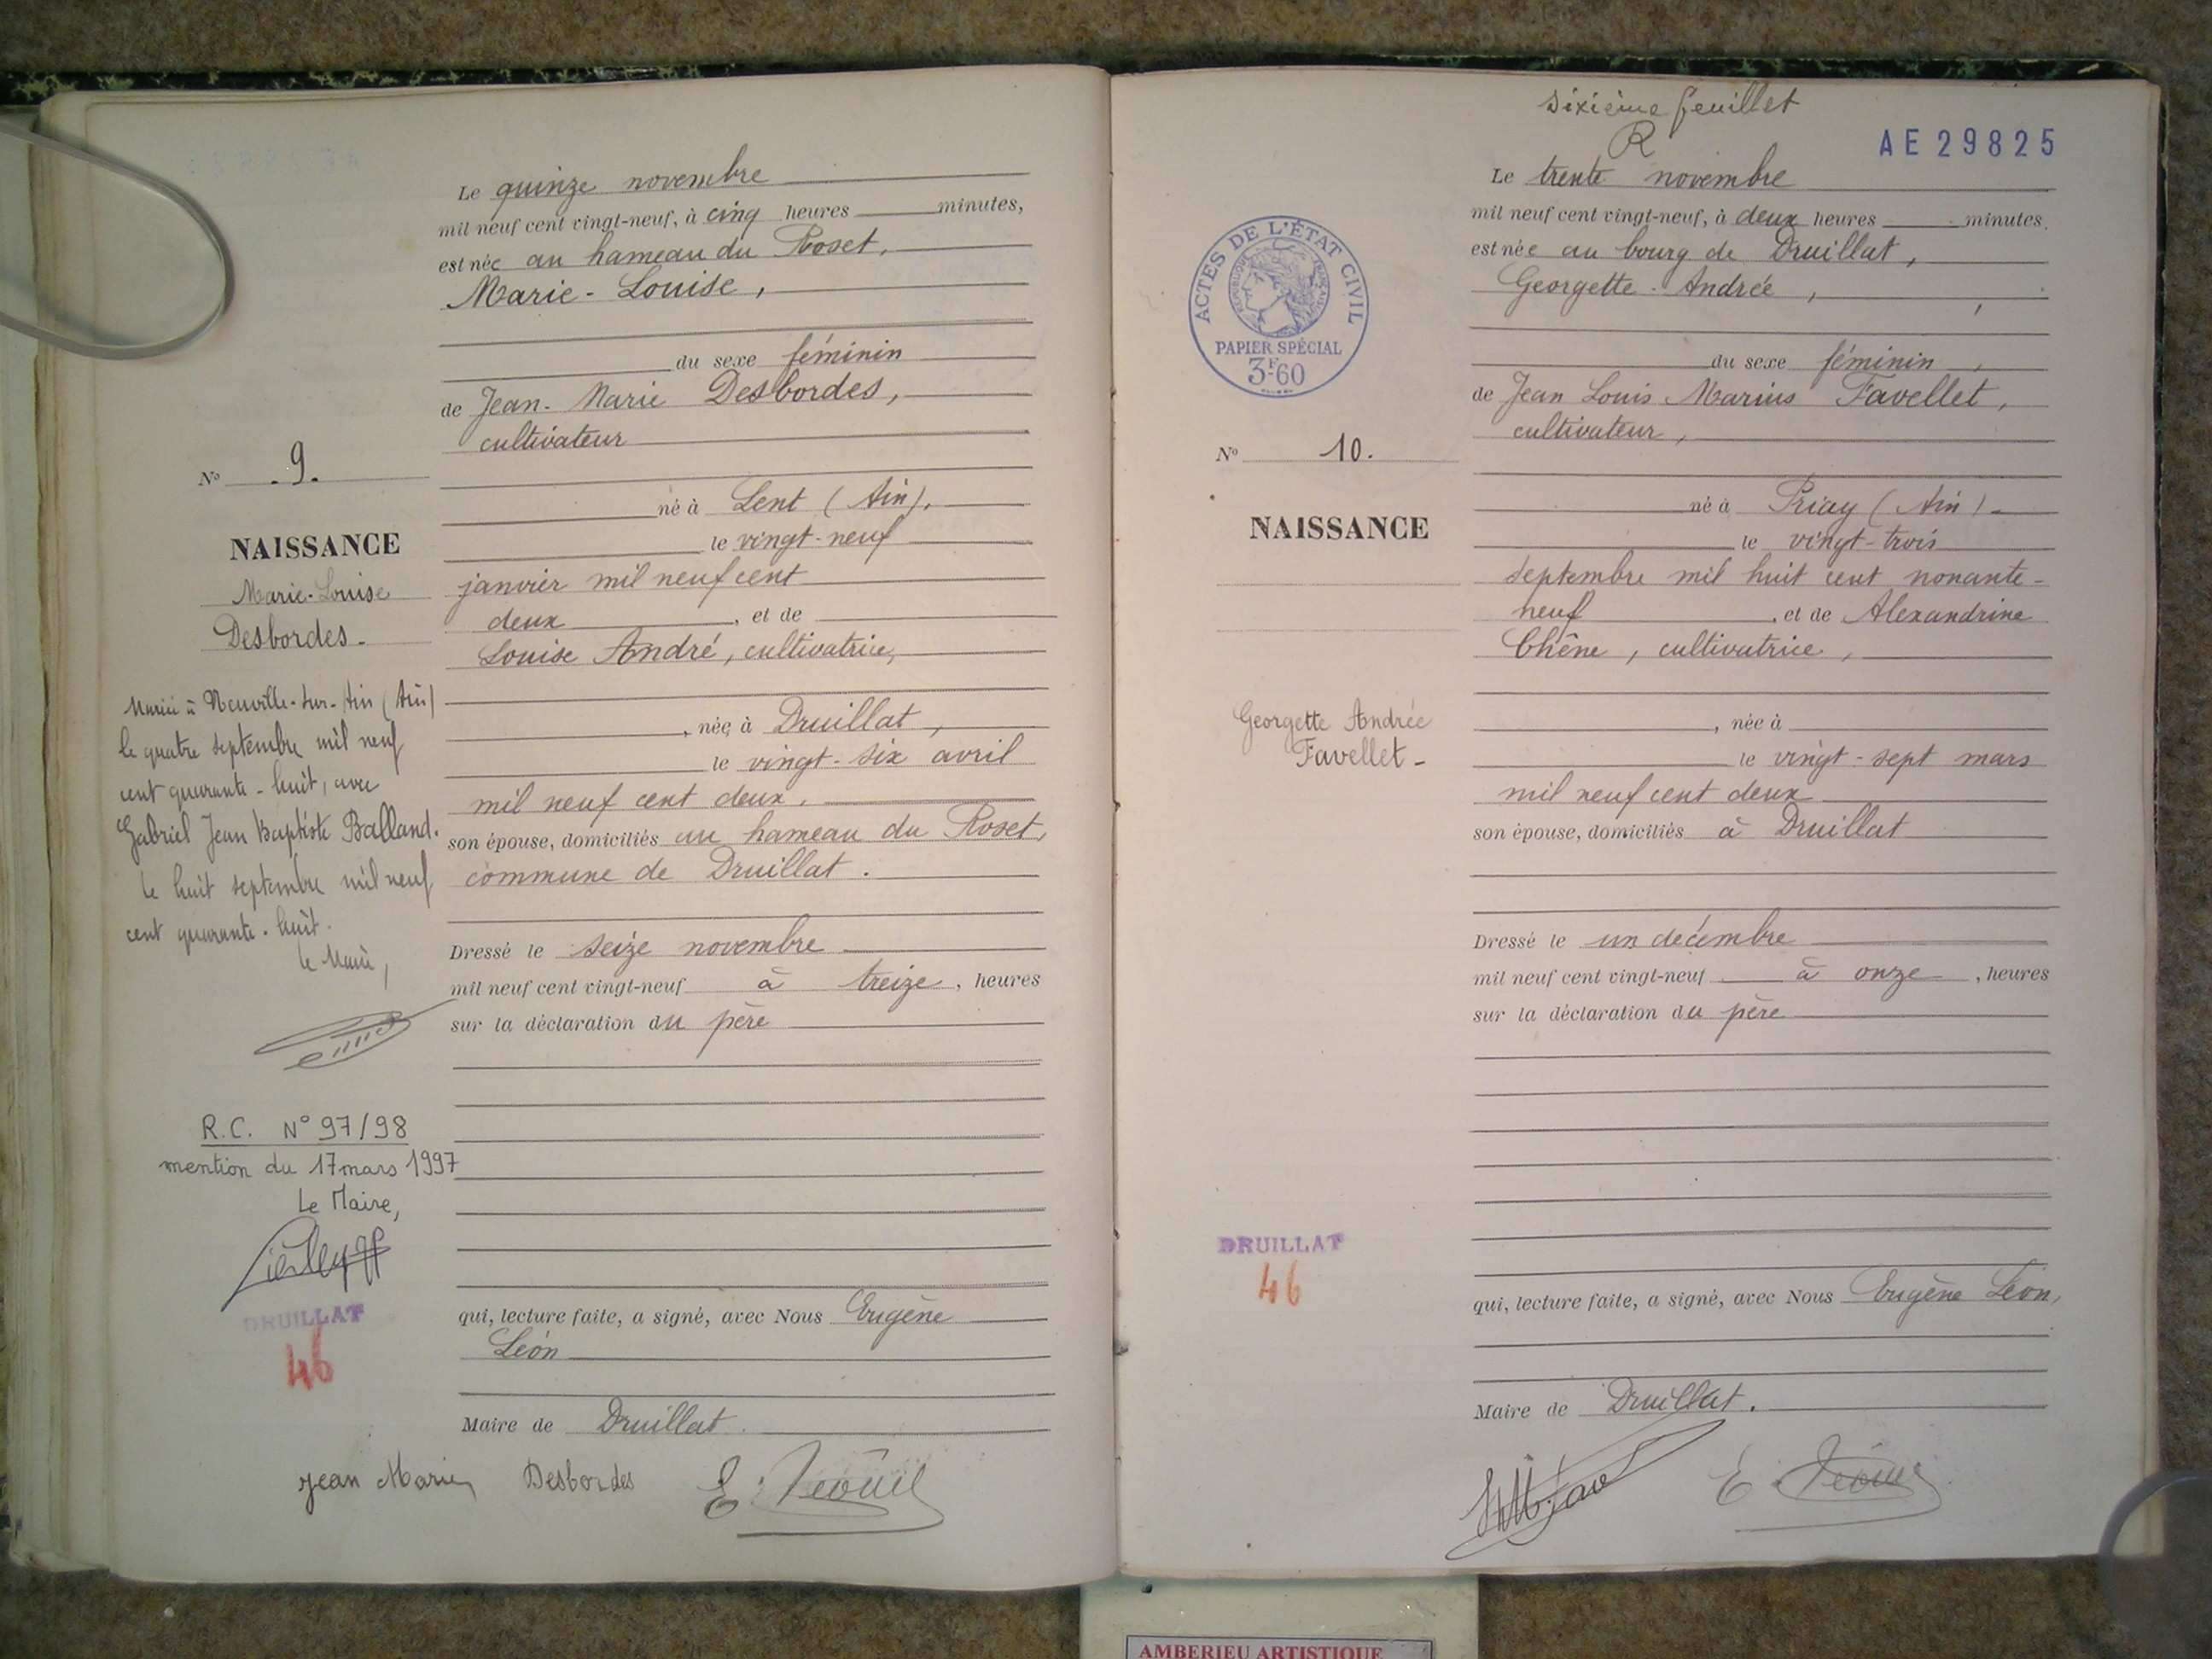 Le quinze novembre
mil neuf cent vingt-neuf, à cinq heures minutes,
est née au hameau du Roset,
Marie-Louise,
du sexe féminin
de Jean-Marie Desbordes,
cultivateur
né à Lent (Ain),
le vingt-neuf
janvier mil neuf cent
deux, et de
Louise André, cultivatrice,
, née à Druillat,
le vingt-six avril
mil neuf cent deux,
son épouse, domiciliés au hameau du Roset,
commune de Druillat.
Dressé le seize novembre
mil neuf cent vingt-neuf à treize, heures
sur la déclaration du père
qui, lecture faite, a signé, avec Nous Eugène
Léon
Maire de Druillat.
Jean Marie Desbordes
No .9.
NAISSANCE
Marie-Louise
Desbordes-
Mariée à Neuville-sur-Ain (Ain)
le quatre septembre mil neuf
cent quarante-huit, avec
Gabriel Jean Baptiste Balland.
le huit septembre mil neuf
cent quarante-huit.
le Maire,
R.C. N° 97/98
mention du 17 mars 1997
Le Maire,
DRUILLAT
46
sixième feuillet
R
AE 29825
Le trente novembre
mil neuf cent vingt-neuf, à deux heures minutes.
est née au bourg de Druillat,
Georgette-Andrée,
du sexe féminin,
de Jean Louis Marius Favellet,
cultivateur,
né à Priay (Ain)-
le vingt-trois
septembre mil huit cent nonante-
neuf, et de Alexandrine
Chêne, cultivatrice,
, née à
le vingt-sept mars
mil neuf cent deux
son épouse, domiciliés à Druillat
Dressé le un décembre
mil neuf cent vingt-neuf à onze, heures
sur la déclaration du père
qui, lecture faite, a signé, avec Nous Eugène Léon,
Maire de Druillat.
ACTES DE L'ÉTAT CIVIL
RÉPUBLIQUE FRANÇAISE
PAPIER SPÉCIAL
3F60
No 10.
NAISSANCE
Georgette Andrée
Favellet-
DRUILLAT
46
AMBERIEU ARTISTIQUE